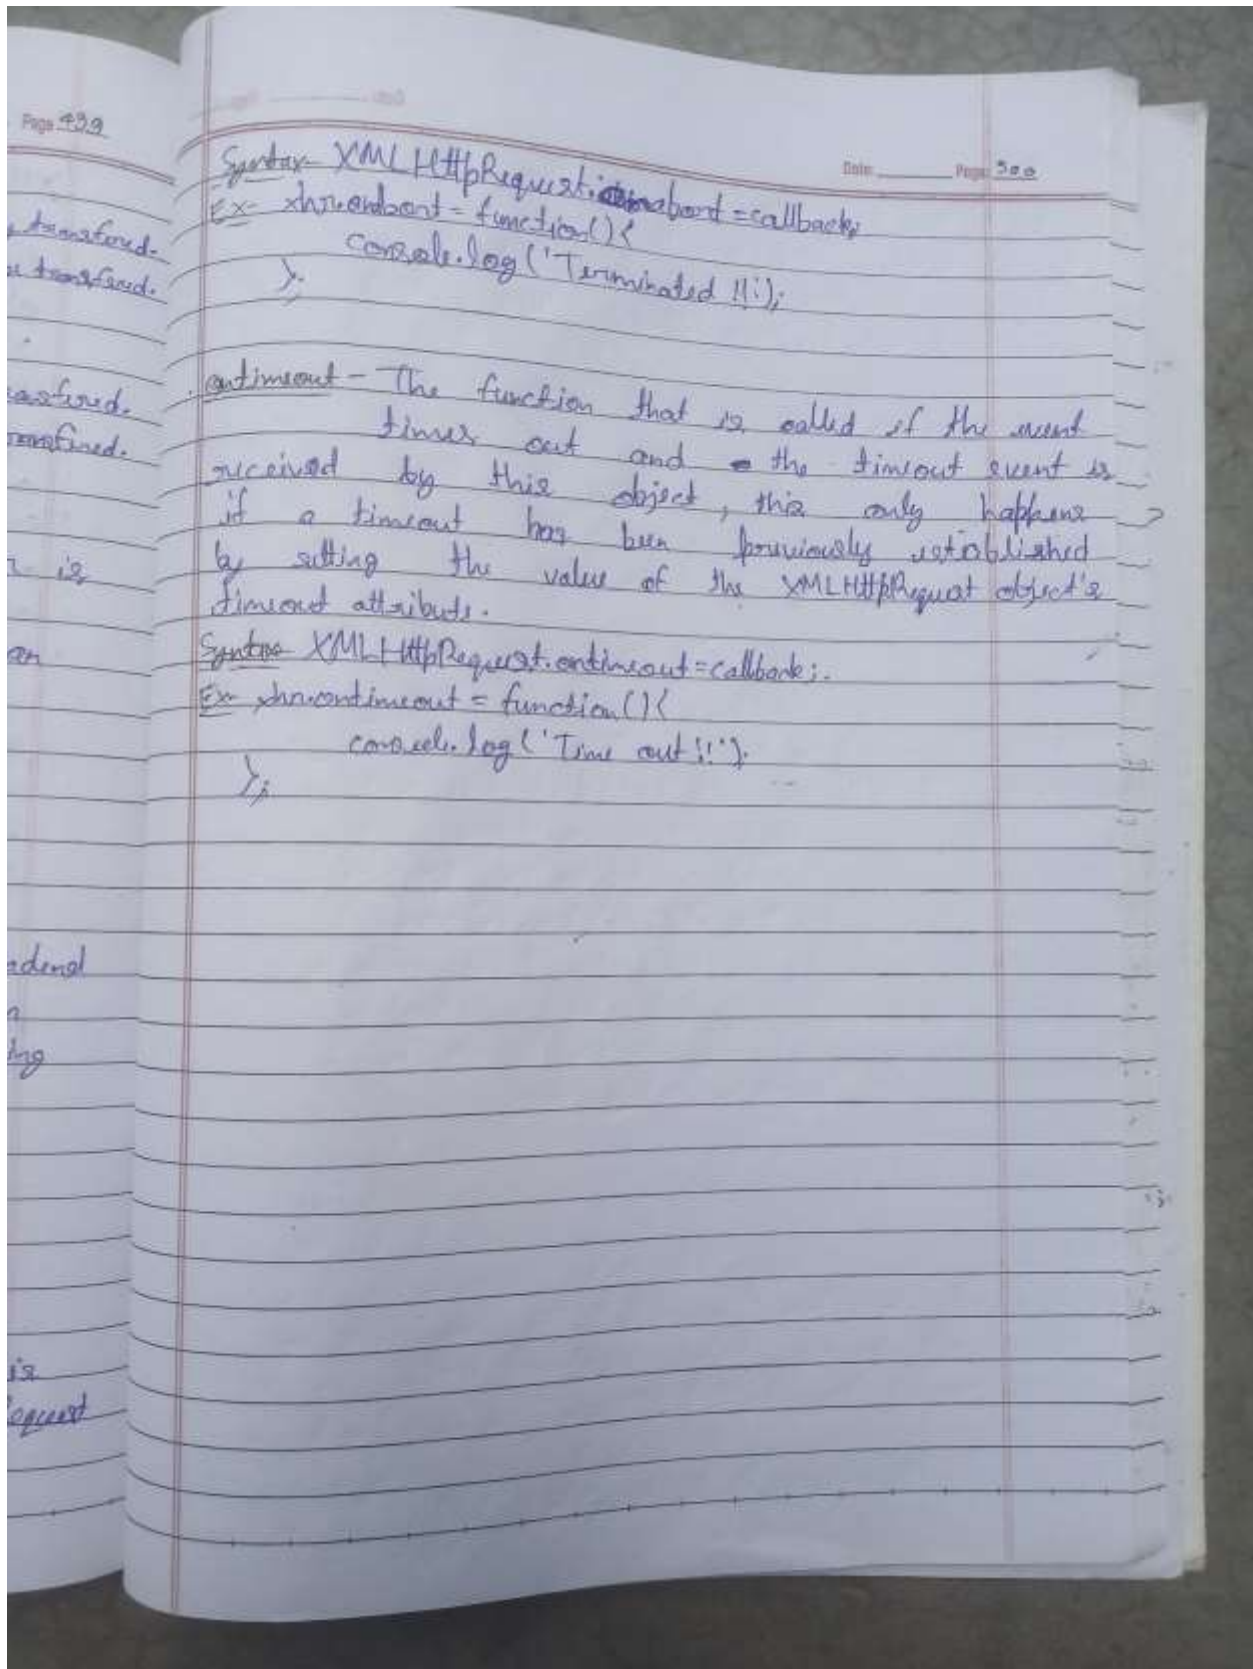 Page 499
transfered.
transfered.
transfered.
is
an
is
Request
Date: Page 500
Syntax- XMLHttpRequest.onabort = callback;
Ex- xhr.onabort = function(){
console.log('Terminated !!');
};
ontimeout - The function that is called if the event
times out and the timeout event is
received by this object, this only happens
if a timeout has been previously established
by setting the value of the XMLHttpRequest object's
timeout attribute.
Syntax XMLHttpRequest.ontimeout = callback;
Ex- xhr.ontimeout = function(){
console.log('Time out !!');
};